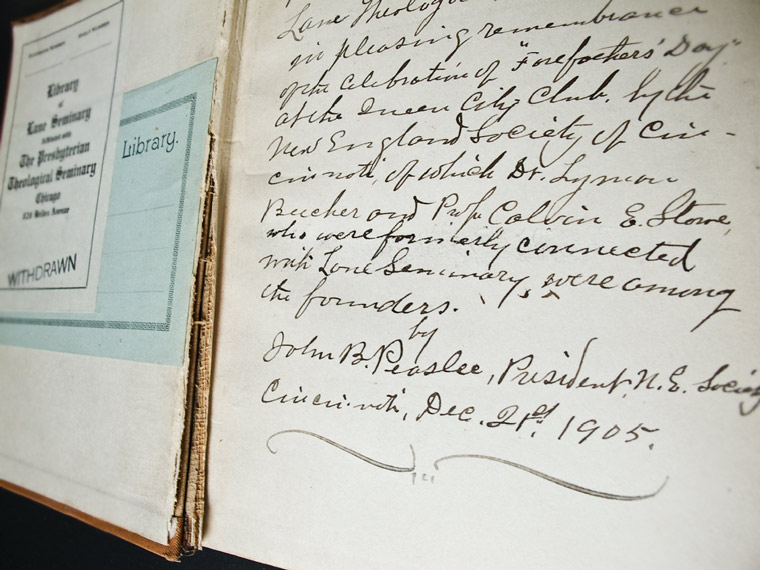 Library
of
Lane Seminary
affiliated with
The Presbyterian
Theological Seminary
Chicago
WITHDRAWN
Library.
Lane Theolog
in pleasing remembrance
of the celebration of "Forefathers' Day"
at the Queen City Club, by the
New England Society of Cin-
cinnati, of which Dr. Lyman
Beecher and Prof. Calvin E. Stowe,
who were formerly connected
with Lane Seminary, were among
the founders.
by
John B. Peaslee, President, N. E. Society
Cincinnati, Dec. 21st. 1905.